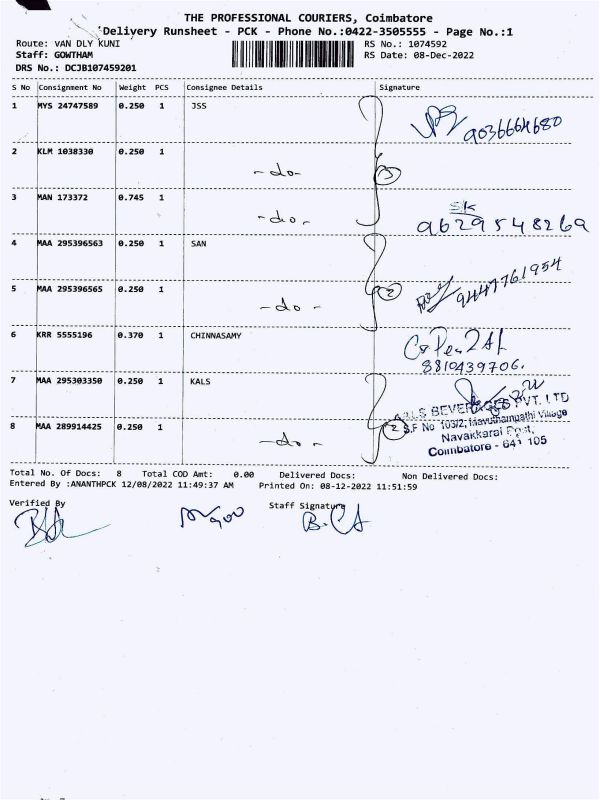 THE PROFESSIONAL COURIERS, Coimbatore
Delivery Runsheet - PCK - Phone No.:0422-3505555 - Page No.:1
Route: VAN DLY KUNI
RS No.: 1074592
Staff: GOWTHAM
RS Date: 08-Dec-2022
DRS No.: DCJB107459201
S No Consignment No Weight PCS Consignee Details Signature
1 MYS 24747589 0.250 1 JSS
9036664680
2 KLM 1038330 0.250 1 -do- 3
3 MAN 173372 0.745 1 -do- SK
9629548269
4 MAA 295396563 0.250 1 SAN
5 MAA 295396565 0.250 1 -do- 2 9447761954
6 KRR 5555196 0.370 1 CHINNASAMY
8810439706.
7 MAA 295303350 0.250 1 KALS
KALS BEVERAGES PVT. LTD
8 MAA 289914425 0.250 1 -do- 2 S.F No 103/2, Mavuthampathi Village
Navakkarai Post,
Coimbatore - 641 105
Total No. Of Docs: 8 Total COD Amt: 0.00 Delivered Docs: Non Delivered Docs:
Entered By :ANANTHPCK 12/08/2022 11:49:37 AM Printed On: 08-12-2022 11:51:59
Verified By Staff Signature